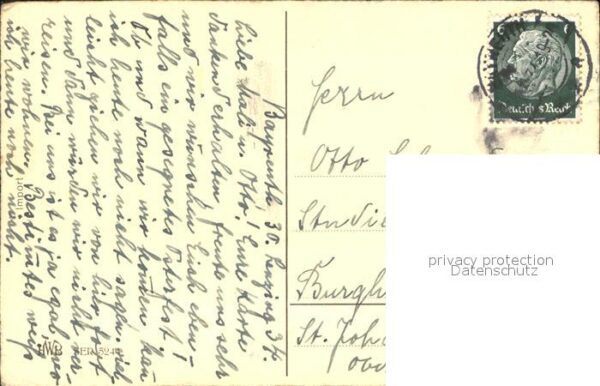 Bayreuth, 30. Lenzing 34.
Liebe Mali u. Otto! Eure Karte
dankend erhalten, freute uns sehr
wir wünschen Euch eben-
falls ein gesegnetes Osterfest!
Ob und wann wir kommen kann
ich heute noch nicht sagen. Viel
leicht ziehen wir von hier fort
und dann würden wir nicht ver-
reisen. Bei uns ist es ja egal, wo
wir wohnen. Bestimmtes weiß
ich heute noch nicht.
HWB SER. 524
Import
Herrn
Otto
Studie
Burgh
St. Joh
6 6
Deutsches Reich
privacy protection
Datenschutz